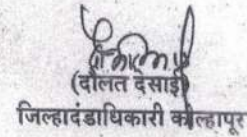 (दौलत देसाई)
जिल्हादंडाधिकारी कोल्हापूर